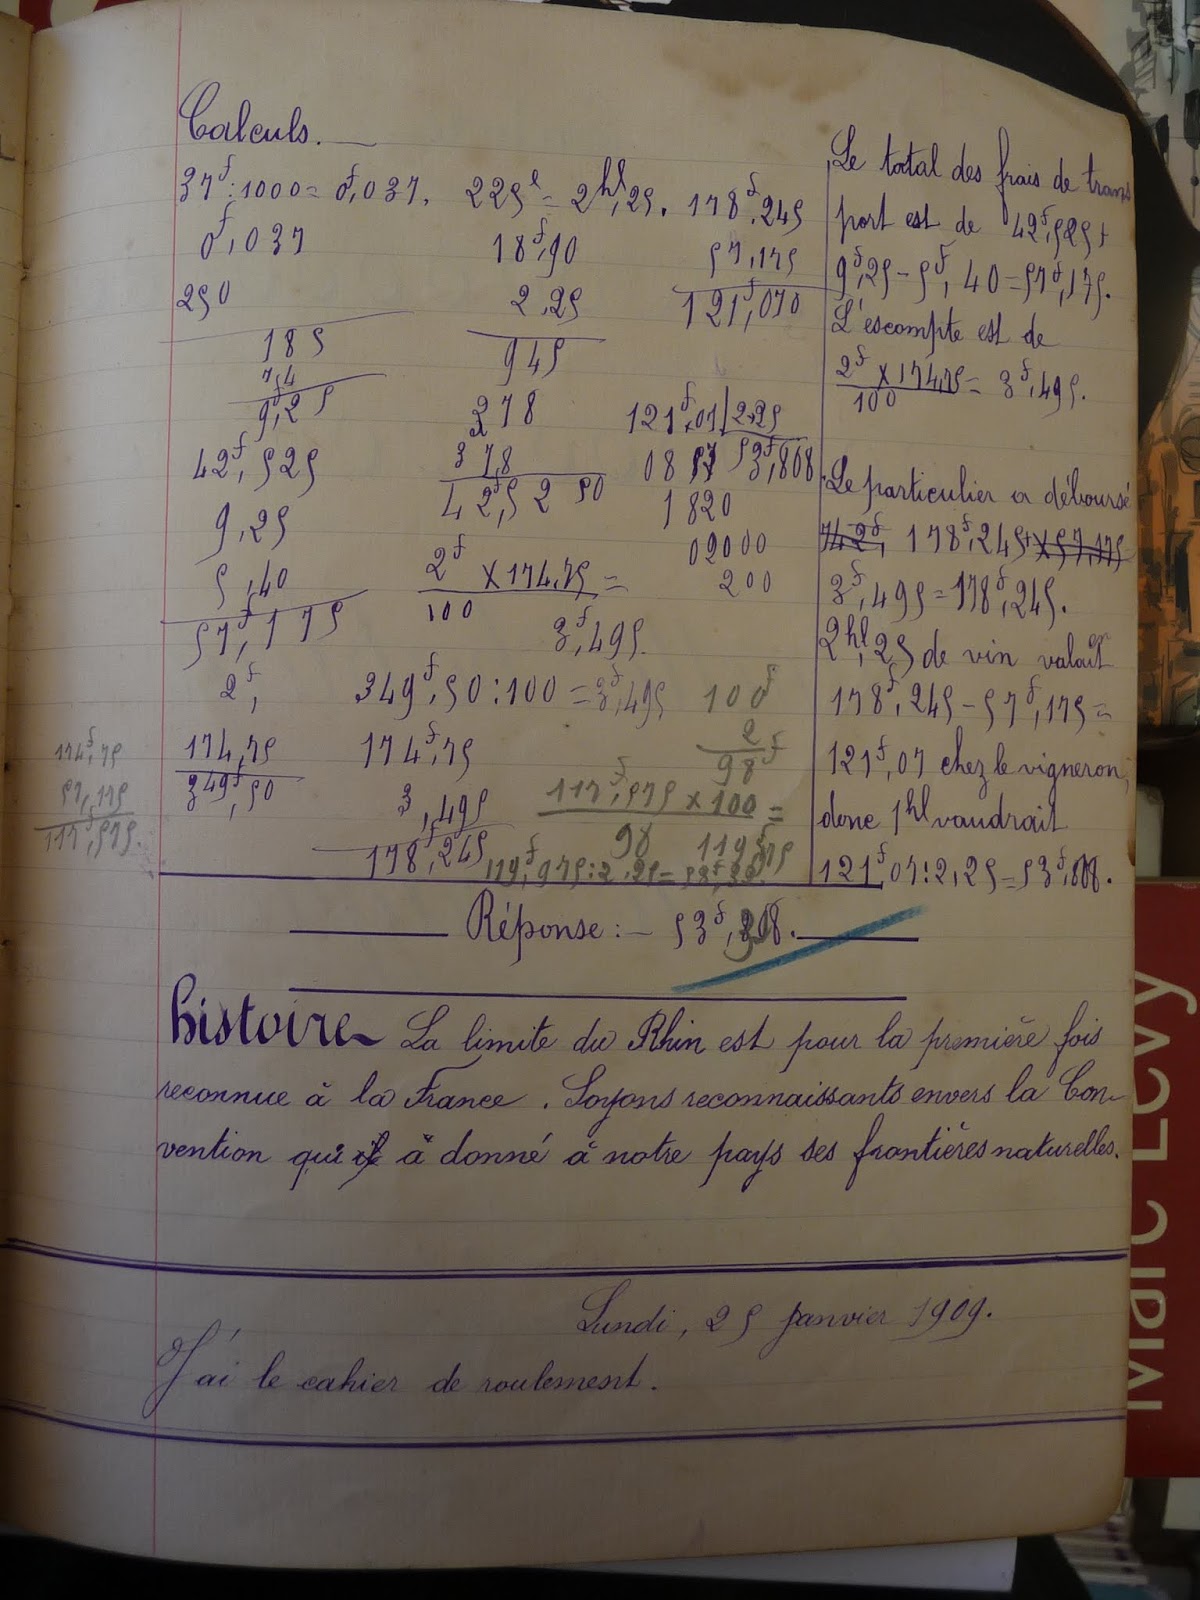 Calculs.
37f : 1000 = 0f,037. 225l = 2hl,25. 178f,245
0f,037 18f,90 57,175
250 2,25 121f,070
185 945
74 378
9f,25 378
42f,5250
121f,01 | 2,25
08 57 53f,808
1820
02000
200
42f,525
9,25
5,40
57f,175
2f × 174,75 =
100
3f,495.
2f,
174,75
349f,50
349f,50 : 100 = 3f,495
174f,75
3,495
178f,245
100f
2
98f
117f,575 × 100 =
98
174f,75
57,175
117f,575.
Le total des frais de trans
port est de 42f,525 +
9f,25 - 5f,40 = 57f,175.
L'escompte est de
2f × 174,75 = 3f,495.
100
Le particulier a déboursé
742f, 178f,245 + × 57,175
3f,495 = 178f,245.
2hl,25 de vin valait
178f,245 - 57f,175 =
121f,07 chez le vigneron,
donc 1hl vaudrait
121f,07 : 2,25 = 53f,808.
Réponse : - 53f,
histoire La limite du Rhin est pour la première fois
reconnue à la France. Soyons reconnaissants envers la Con-
vention qui il à donné à notre pays ses frontières naturelles.
Lundi, 25 janvier 1909.
J'ai le cahier de roulement.
Marc Levy